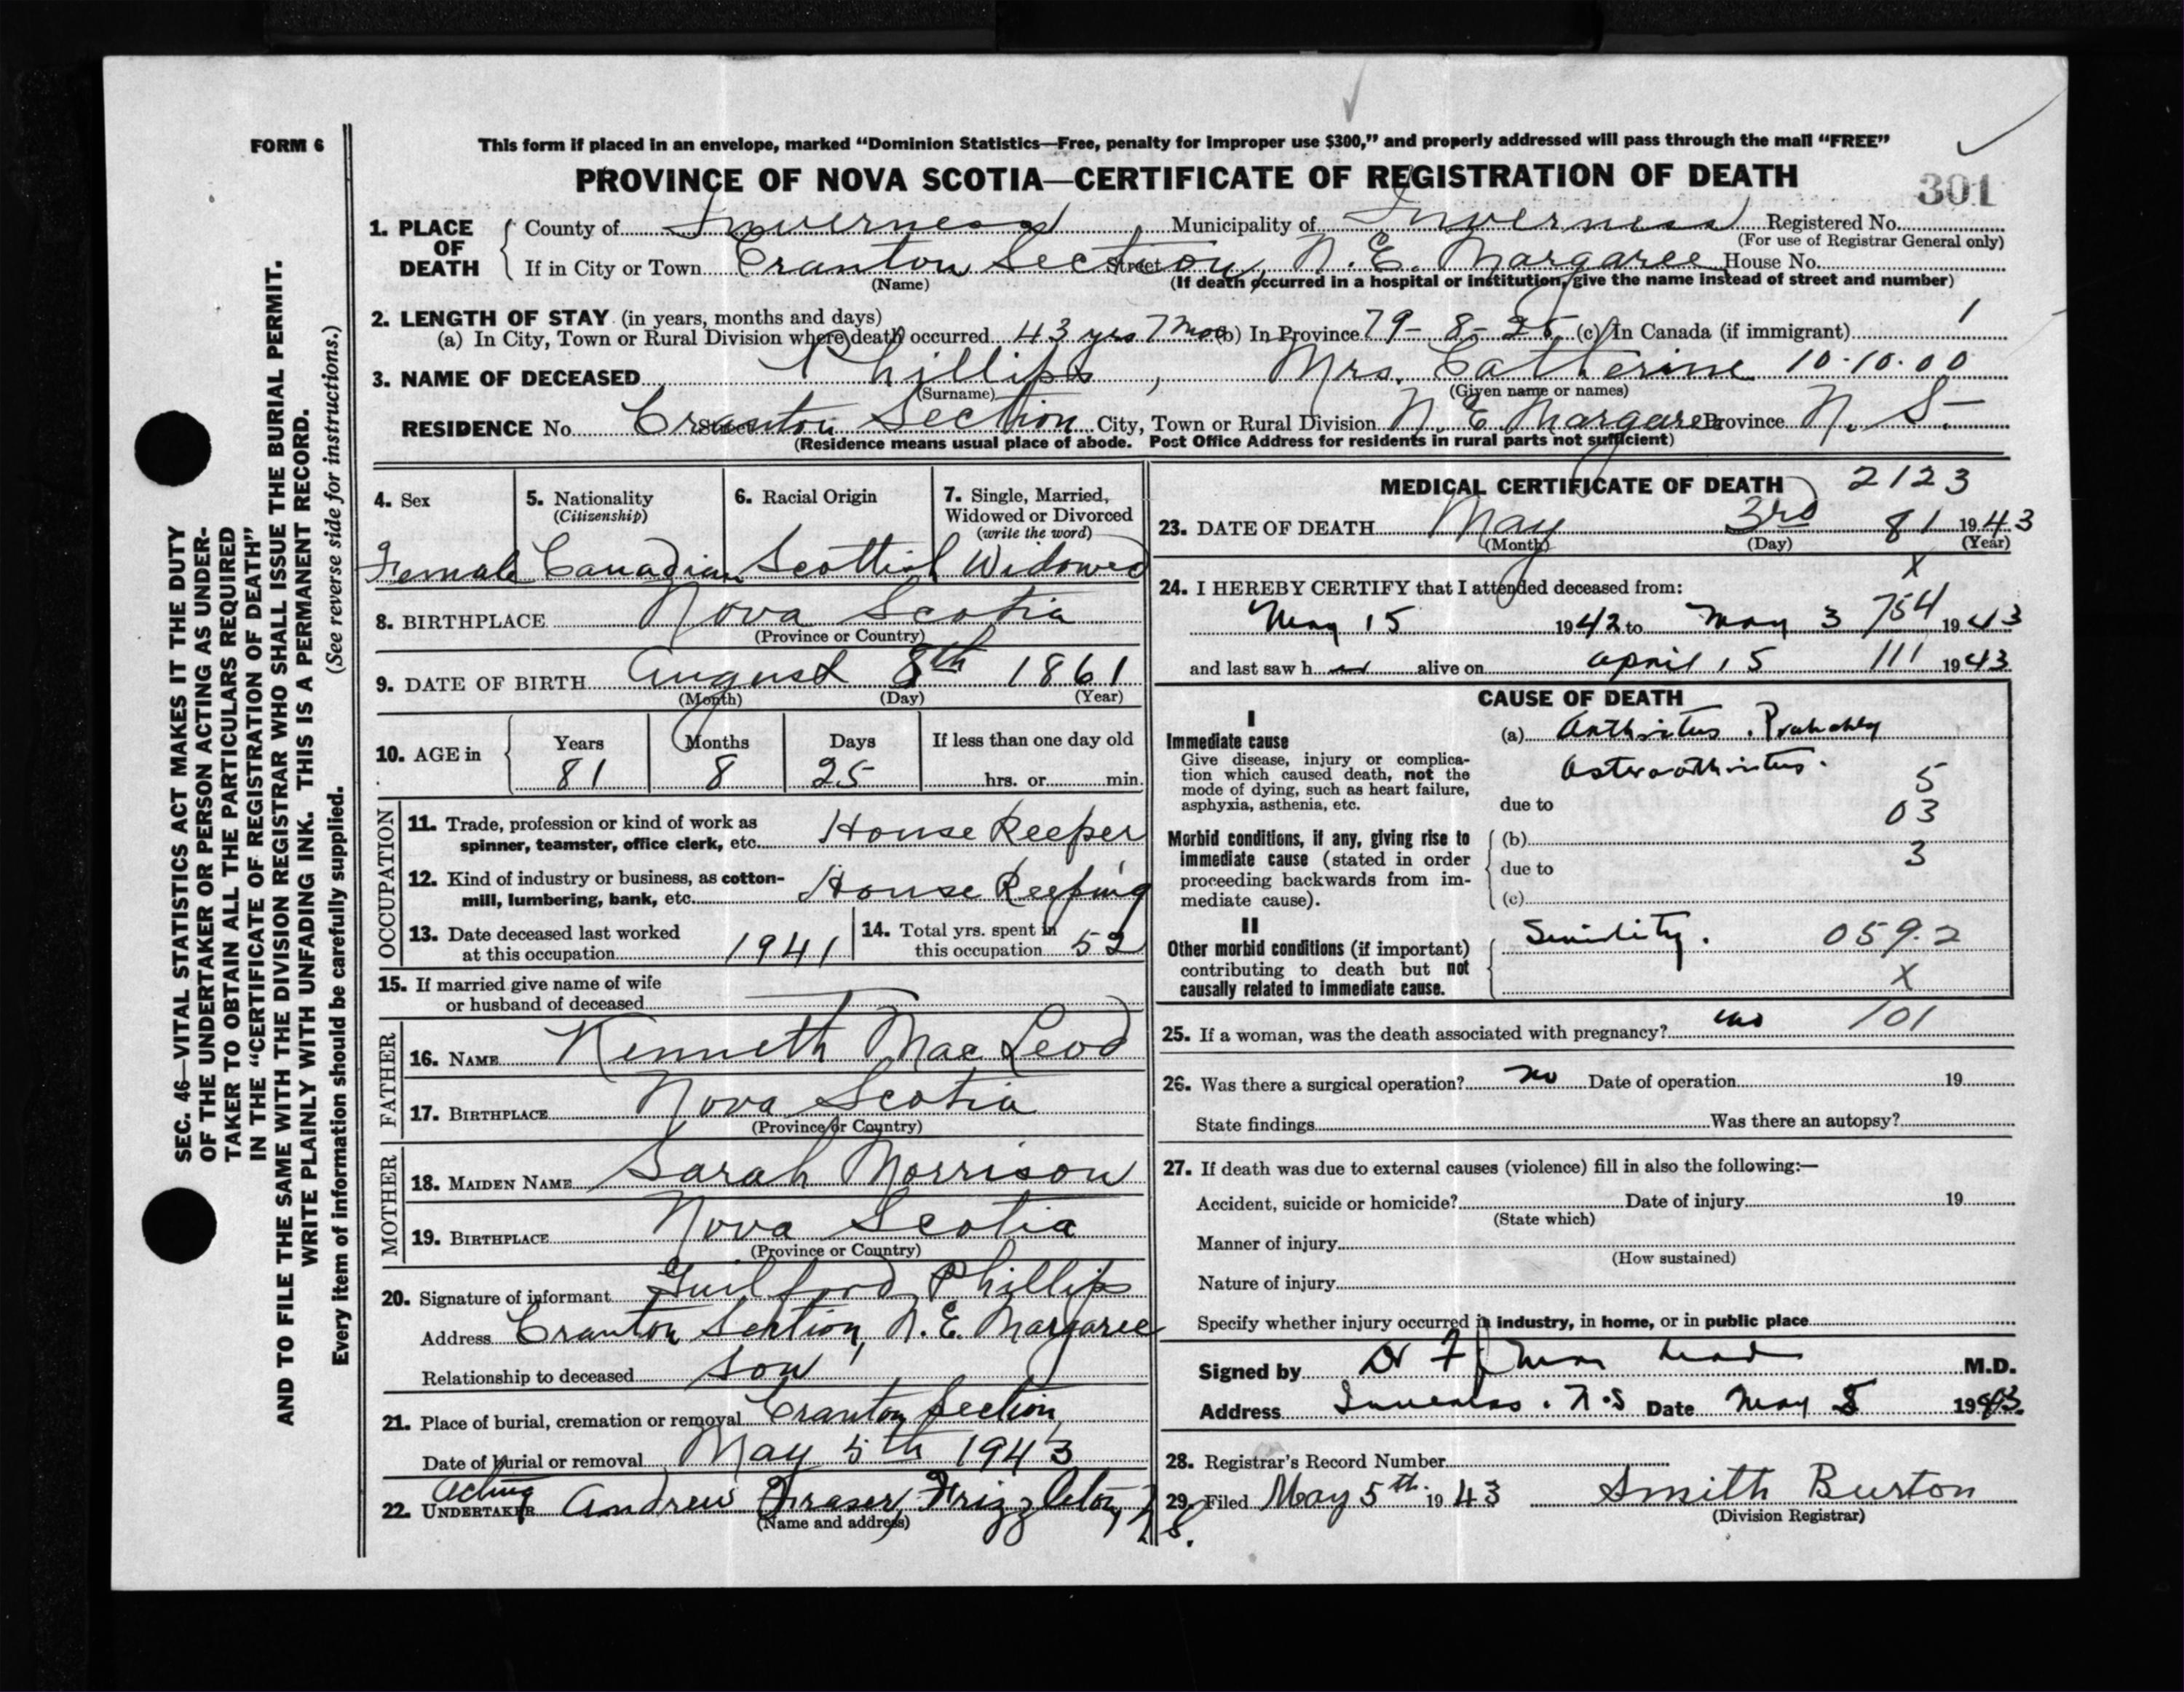 FORM 6
This form if placed in an envelope, marked “Dominion Statistics—Free, penalty for improper use $300,” and properly addressed will pass through the mail “FREE”
PROVINCE OF NOVA SCOTIA—CERTIFICATE OF REGISTRATION OF DEATH
301
1. PLACE OF DEATH
County of Inverness Municipality of Inverness Registered No.
(For use of Registrar General only)
If in City or Town Cranton Section, N. E. Margaree Street House No.
(Name) (If death occurred in a hospital or institution, give the name instead of street and number)
2. LENGTH OF STAY (in years, months and days)
(a) In City, Town or Rural Division where death occurred 43 yrs 7 mos (b) In Province 79 - 8 - 25 (c) In Canada (if immigrant) 1
3. NAME OF DECEASED Phillips, Mrs. Catherine 10·10·00
(Surname) (Given name or names)
RESIDENCE No. Cranton Section Street City, Town or Rural Division N. E Margaree Province N. S.
(Residence means usual place of abode. Post Office Address for residents in rural parts not sufficient)
4. Sex
Female
5. Nationality
(Citizenship)
Canadian
6. Racial Origin
Scottish
7. Single, Married,
Widowed or Divorced
(write the word)
Widowed
8. BIRTHPLACE Nova Scotia
(Province or Country)
9. DATE OF BIRTH August 8th 1861
(Month) (Day) (Year)
10. AGE in Years Months Days If less than one day old
81 8 25 hrs. or min.
OCCUPATION
11. Trade, profession or kind of work as
spinner, teamster, office clerk, etc. House Keeper
12. Kind of industry or business, as cotton-
mill, lumbering, bank, etc. House Keeping
13. Date deceased last worked
at this occupation 1941
14. Total yrs. spent in
this occupation 52
15. If married give name of wife
or husband of deceased
FATHER
16. NAME Kenneth MacLeod
17. BIRTHPLACE Nova Scotia
(Province or Country)
MOTHER
18. MAIDEN NAME Sarah Morrison
19. BIRTHPLACE Nova Scotia
(Province or Country)
20. Signature of informant Guilford Phillips
Address Cranton Section, N. E. Margaree
Relationship to deceased son
21. Place of burial, cremation or removal Cranton Section,
Date of burial or removal May 5th 1943
Acting
22. UNDERTAKER Andrew Fraser, Frizzleton, N.S.
(Name and address)
MEDICAL CERTIFICATE OF DEATH 2123
23. DATE OF DEATH May 3rd 81 1943
(Month) (Day) (Year)
X
24. I HEREBY CERTIFY that I attended deceased from:
May 15 1942 to May 3 754 1943
and last saw h alive on April 15 111 1943
CAUSE OF DEATH
I
Immediate cause
Give disease, injury or complica-
tion which caused death, not the
mode of dying, such as heart failure,
asphyxia, asthenia, etc.
(a) Arthritus. Probably
Osteroarthritus.
5
due to 03
Morbid conditions, if any, giving rise to
immediate cause (stated in order
proceeding backwards from im-
mediate cause).
(b)
due to 3
(c)
II
Other morbid conditions (if important)
contributing to death but not
causally related to immediate cause.
Senility. 059.2
X
25. If a woman, was the death associated with pregnancy? no 101
26. Was there a surgical operation? no Date of operation 19
State findings Was there an autopsy?
27. If death was due to external causes (violence) fill in also the following:—
Accident, suicide or homicide? Date of injury 19
(State which)
Manner of injury
(How sustained)
Nature of injury
Specify whether injury occurred in industry, in home, or in public place
Signed by Dr M.D.
Address Inverness. N.S Date May 5 1943.
28. Registrar's Record Number
29. Filed May 5th. 1943 Smith Burton
(Division Registrar)
SEC. 46—VITAL STATISTICS ACT MAKES IT THE DUTY
OF THE UNDERTAKER OR PERSON ACTING AS UNDER-
TAKER TO OBTAIN ALL THE PARTICULARS REQUIRED
IN THE “CERTIFICATE OF REGISTRATION OF DEATH”
AND TO FILE THE SAME WITH THE DIVISION REGISTRAR WHO SHALL ISSUE THE BURIAL PERMIT.
WRITE PLAINLY WITH UNFADING INK. THIS IS A PERMANENT RECORD.
Every item of information should be carefully supplied. (See reverse side for instructions.)